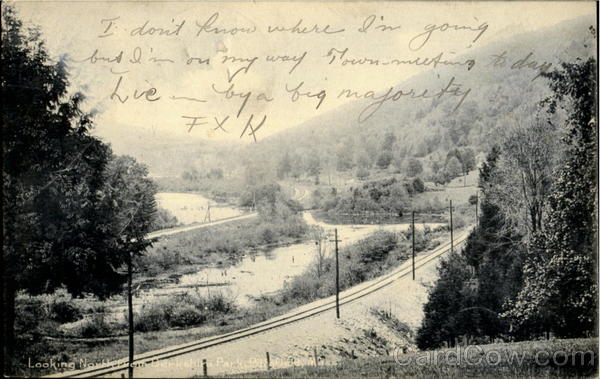 I don't know where I'm going
but I'm on my way Town-meeting to day
Live in by a big majority
F X K
Looking North from Berkshire Park, Pittsfield, Mass.
CardCow.com